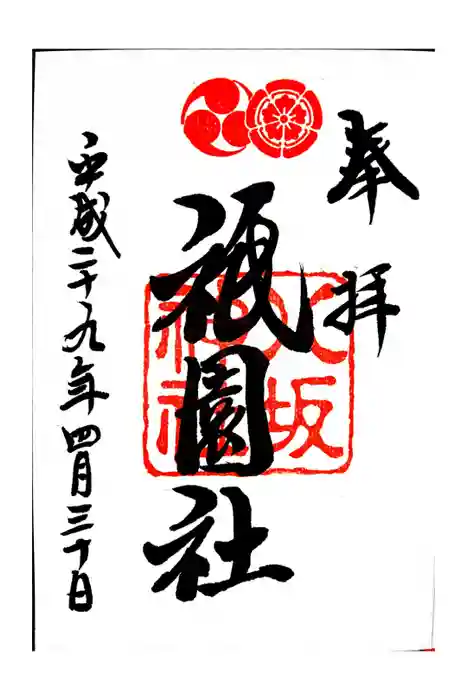 奉拝
祇園社
八坂神社
平成二十九年四月三十日